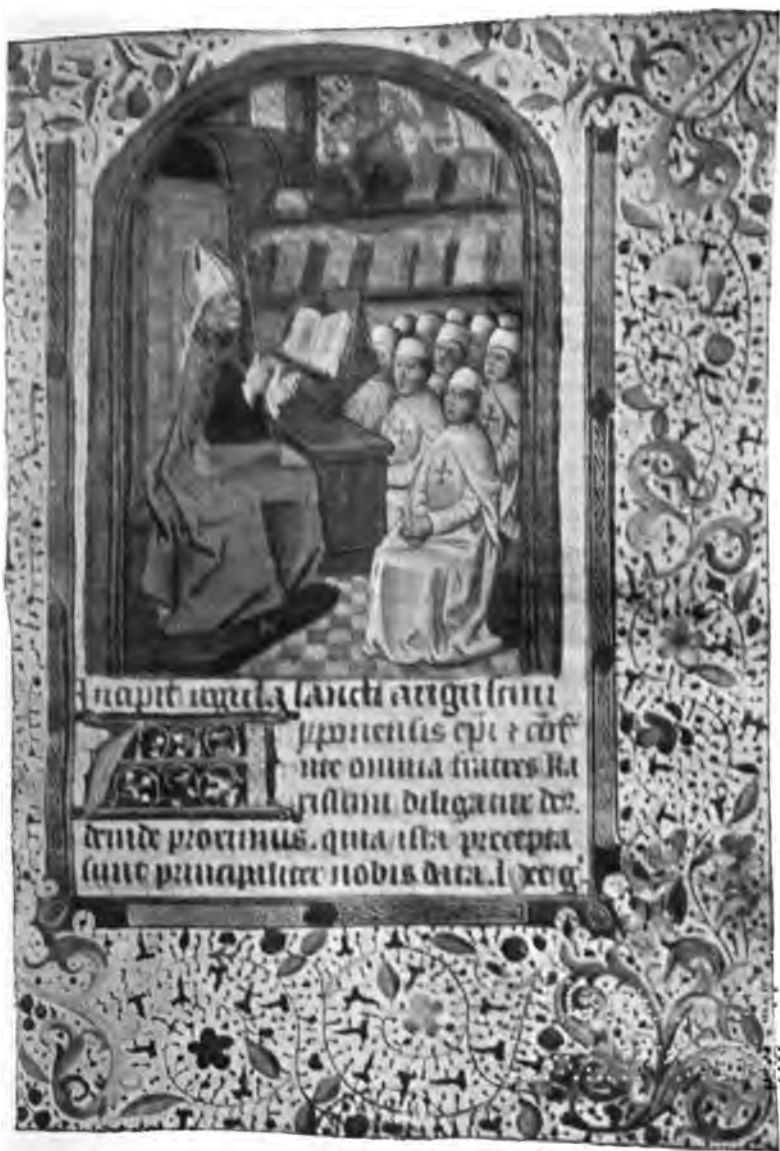 Incipit regula sancti augustini
ypponensis ep̄i ⁊ cōf
Ante omnia fratres ka
rissimi diligatur deꝰ.
deinde proximus. quia ista precepta
sunt principaliter nobis data.